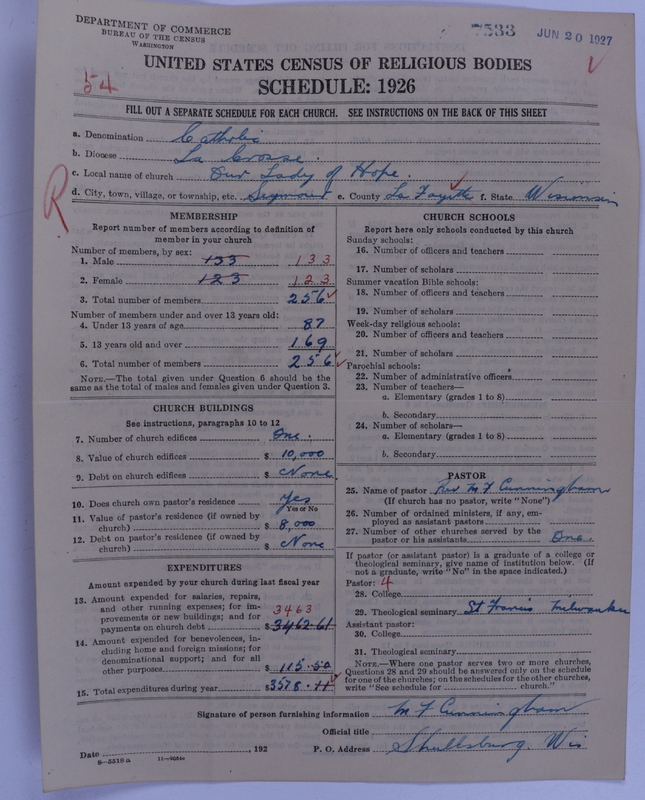 DEPARTMENT OF COMMERCE
BUREAU OF THE CENSUS
WASHINGTON
7533
JUN 20 1927
54
UNITED STATES CENSUS OF RELIGIOUS BODIES
SCHEDULE: 1926
FILL OUT A SEPARATE SCHEDULE FOR EACH CHURCH. SEE INSTRUCTIONS ON THE BACK OF THIS SHEET
a. Denomination Catholic
b. Diocese La Crosse.
c. Local name of church Our Lady of Hope.
d. City, town, village, or township, etc. Seymour e. County La Fayette f. State Wisconsin
R
MEMBERSHIP
Report number of members according to definition of
member in your church
Number of members, by sex:
1. Male 133 133
2. Female 123 123
3. Total number of members 256
Number of members under and over 13 years old:
4. Under 13 years of age 87
5. 13 years old and over 169
6. Total number of members 256
NOTE.—The total given under Question 6 should be the
same as the total of males and females given under Question 3.
CHURCH BUILDINGS
See instructions, paragraphs 10 to 12
7. Number of church edifices One.
8. Value of church edifices $ 10,000
9. Debt on church edifices $ None
10. Does church own pastor's residence Yes
Yes or No
11. Value of pastor's residence (if owned by
church) $ 8,000
12. Debt on pastor's residence (if owned by
church) $ None
EXPENDITURES
Amount expended by your church during last fiscal year
13. Amount expended for salaries, repairs,
and other running expenses; for im-
provements or new buildings; and for
payments on church debt 3463 $ 3462.61
14. Amount expended for benevolences, in-
cluding home and foreign missions; for
denominational support; and for all
other purposes $ 115.50
15. Total expenditures during year $ 3578.11
CHURCH SCHOOLS
Report here only schools conducted by this church
Sunday schools:
16. Number of officers and teachers
17. Number of scholars
Summer vacation Bible schools:
18. Number of officers and teachers
19. Number of scholars
Week-day religious schools:
20. Number of officers and teachers
21. Number of scholars
Parochial schools:
22. Number of administrative officers
23. Number of teachers—
a. Elementary (grades 1 to 8)
b. Secondary
24. Number of scholars—
a. Elementary (grades 1 to 8)
b. Secondary
PASTOR
25. Name of pastor Rev M F Cunningham
(If church has no pastor, write "None")
26. Number of ordained ministers, if any, em-
ployed as assistant pastors
27. Number of other churches served by the
pastor or his assistants One.
If pastor (or assistant pastor) is a graduate of a college or
theological seminary, give name of institution below. (If
not a graduate, write "No" in the space indicated.)
Pastor: 4
28. College
29. Theological seminary St Francis Milwaukee
Assistant pastor:
30. College
31. Theological seminary
NOTE.—Where one pastor serves two or more churches,
Questions 28 and 29 should be answered only on the schedule
for one of the churches; on the schedules for the other churches,
write "See schedule for church."
Signature of person furnishing information M F Cunningham
Official title
Date , 192 P. O. Address Shullsburg, Wis
8—5518a